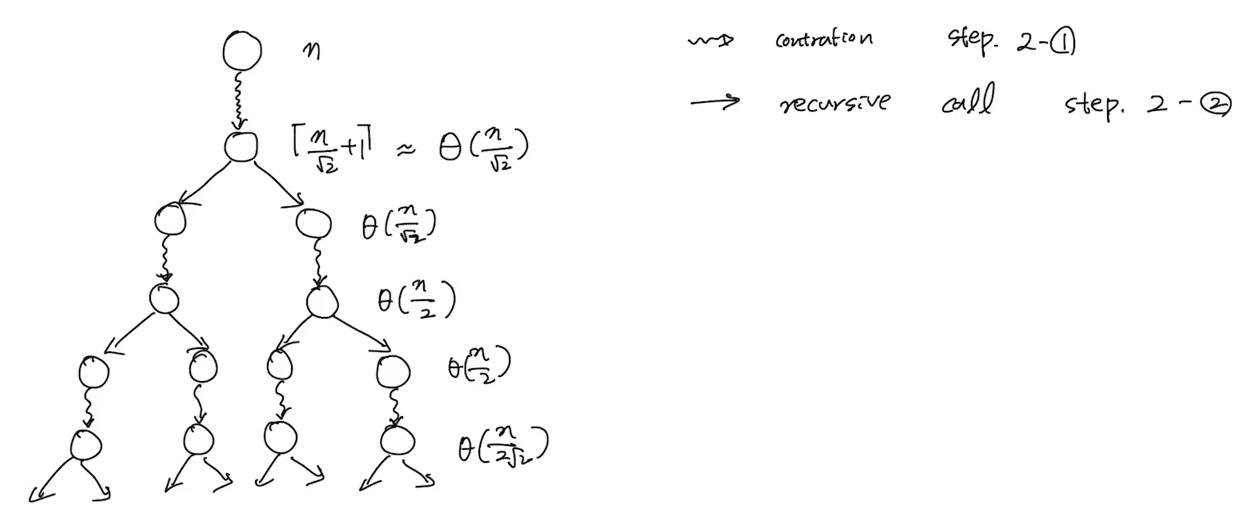 n
⌈n/√2+1⌉ ≈ θ(n/√2)
θ(n/√2)
θ(n/2)
θ(n/2)
θ(n/2√2)
contration step. 2-①
recursive call step. 2-②